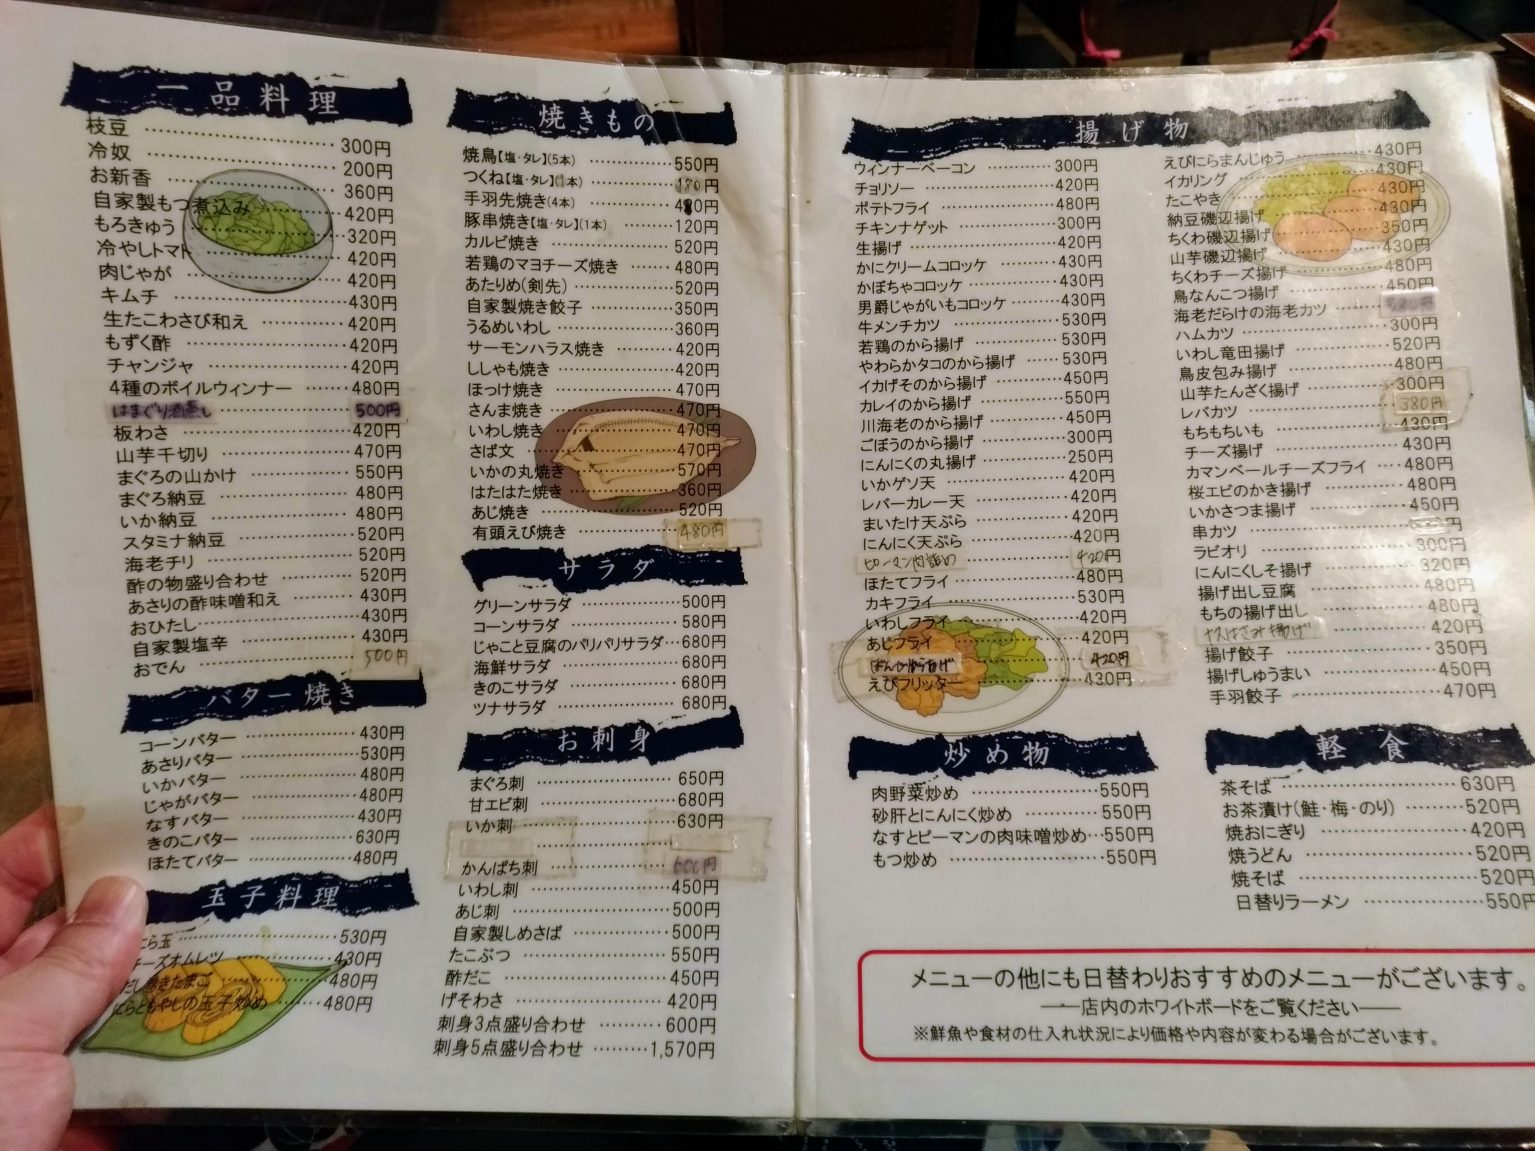 一品料理
枝豆 300円
冷奴 200円
お新香 360円
自家製もつ煮込み 420円
もろきゅう 320円
冷やしトマト 420円
肉じゃが 420円
キムチ 430円
生たこわさび和え 420円
もずく酢 420円
チャンジャ 420円
4種のボイルウィンナー 480円
はまぐり酒蒸し 500円
板わさ 420円
山芋千切り 470円
まぐろの山かけ 550円
まぐろ納豆 480円
いか納豆 480円
スタミナ納豆 520円
海老チリ 520円
酢の物盛り合わせ 520円
あさりの酢味噌和え 430円
おひたし 430円
自家製塩辛 430円
おでん 500円
バター焼き
コーンバター 430円
あさりバター 530円
いかバター 480円
じゃがバター 480円
なすバター 430円
きのこバター 630円
ほたてバター 480円
玉子料理
にら玉 530円
チーズオムレツ 430円
だし焼きたまご 480円
にらともやしの玉子炒め 480円
焼きもの
焼鳥【塩・タレ】(5本) 550円
つくね【塩・タレ】(1本) 180円
手羽先焼き(4本)
豚串焼き【塩・タレ】(1本) 120円
カルビ焼き 520円
若鶏のマヨチーズ焼き 480円
あたりめ(剣先) 520円
自家製焼き餃子 350円
うるめいわし 360円
サーモンハラス焼き 420円
ししゃも焼き 420円
ほっけ焼き 470円
さんま焼き 470円
いわし焼き 470円
さば文 470円
いかの丸焼き 570円
はたはた焼き 360円
あじ焼き 520円
有頭えび焼き 480円
サラダ
グリーンサラダ 500円
コーンサラダ 580円
じゃこと豆腐のパリパリサラダ 680円
海鮮サラダ 680円
きのこサラダ 680円
ツナサラダ 680円
お刺身
まぐろ刺 650円
甘エビ刺 680円
いか刺 630円
かんぱち刺 600円
いわし刺 450円
あじ刺 500円
自家製しめさば 500円
たこぶつ 550円
酢だこ 450円
げそわさ 420円
刺身3点盛り合わせ 600円
刺身5点盛り合わせ 1,570円
揚げ物
ウィンナーベーコン 300円
チョリソー 420円
ポテトフライ 480円
チキンナゲット 300円
生揚げ 420円
かにクリームコロッケ 430円
かぼちゃコロッケ 430円
男爵じゃがいもコロッケ 430円
牛メンチカツ 530円
若鶏のから揚げ 530円
やわらかタコのから揚げ 530円
イカげそのから揚げ 450円
カレイのから揚げ 550円
川海老のから揚げ 450円
ごぼうのから揚げ 300円
にんにくの丸揚げ 250円
いかゲソ天 420円
レバーカレー天 420円
まいたけ天ぷら 420円
にんにく天ぷら 420円
ピーマン肉詰め 420円
ほたてフライ 480円
カキフライ 530円
いわしフライ 420円
あじフライ 420円
420円
えびフリッター 430円
えびにらまんじゅう 430円
イカリング 430円
たこやき 430円
納豆磯辺揚げ 350円
ちくわ磯辺揚げ 430円
山芋磯辺揚げ 480円
ちくわチーズ揚げ 450円
鳥なんこつ揚げ
海老だらけの海老カツ 300円
ハムカツ 520円
いわし竜田揚げ 480円
鳥皮包み揚げ 300円
山芋たんざく揚げ 380円
レバカツ 430円
もちもちいも 430円
チーズ揚げ
カマンベールチーズフライ 480円
桜エビのかき揚げ 480円
いかさつま揚げ 450円
串カツ
ラビオリ 300円
にんにくしそ揚げ 320円
揚げ出し豆腐 480円
もちの揚げ出し 480円
はさみ揚げ 420円
揚げ餃子 350円
揚げしゅうまい 450円
手羽餃子 470円
炒め物
肉野菜炒め 550円
砂肝とにんにく炒め 550円
なすとピーマンの肉味噌炒め 550円
もつ炒め 550円
軽食
茶そば 630円
お茶漬け(鮭・梅・のり) 520円
焼おにぎり 420円
焼うどん 520円
焼そば 520円
日替りラーメン 550円
メニューの他にも日替わりおすすめのメニューがございます。
―店内のホワイトボードをご覧ください―
※鮮魚や食材の仕入れ状況により価格や内容が変わる場合がございます。